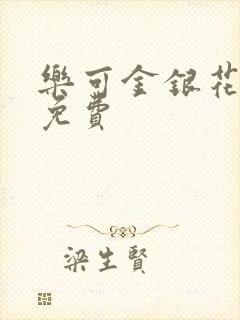 樂可金銀花
免費
梁生賢